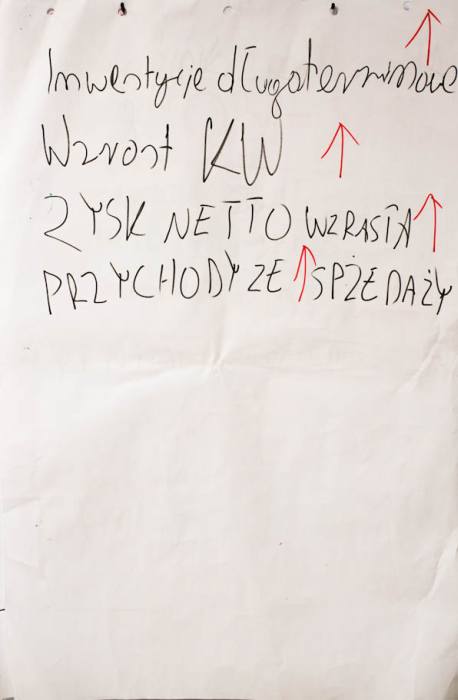 Inwestycje długoterminowe ↑
Wzrost KW ↑
ZYSK NETTO WZRASTA ↑
PRZYCHODY ZE ↑ SPŻEDAŻY